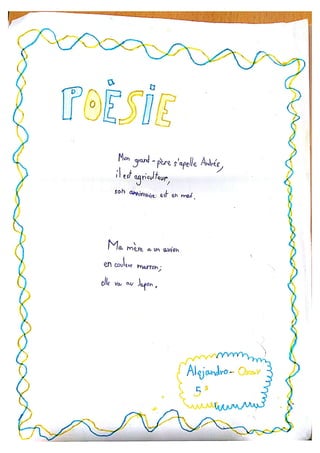 POÈSIE
Mon grand-père s'apelle Andrés,
il est agriculteur,
son anniversaire est en mai.
Ma mère a un avion
en couleur marron;
elle va au Japon.
Alejandro-
5ª